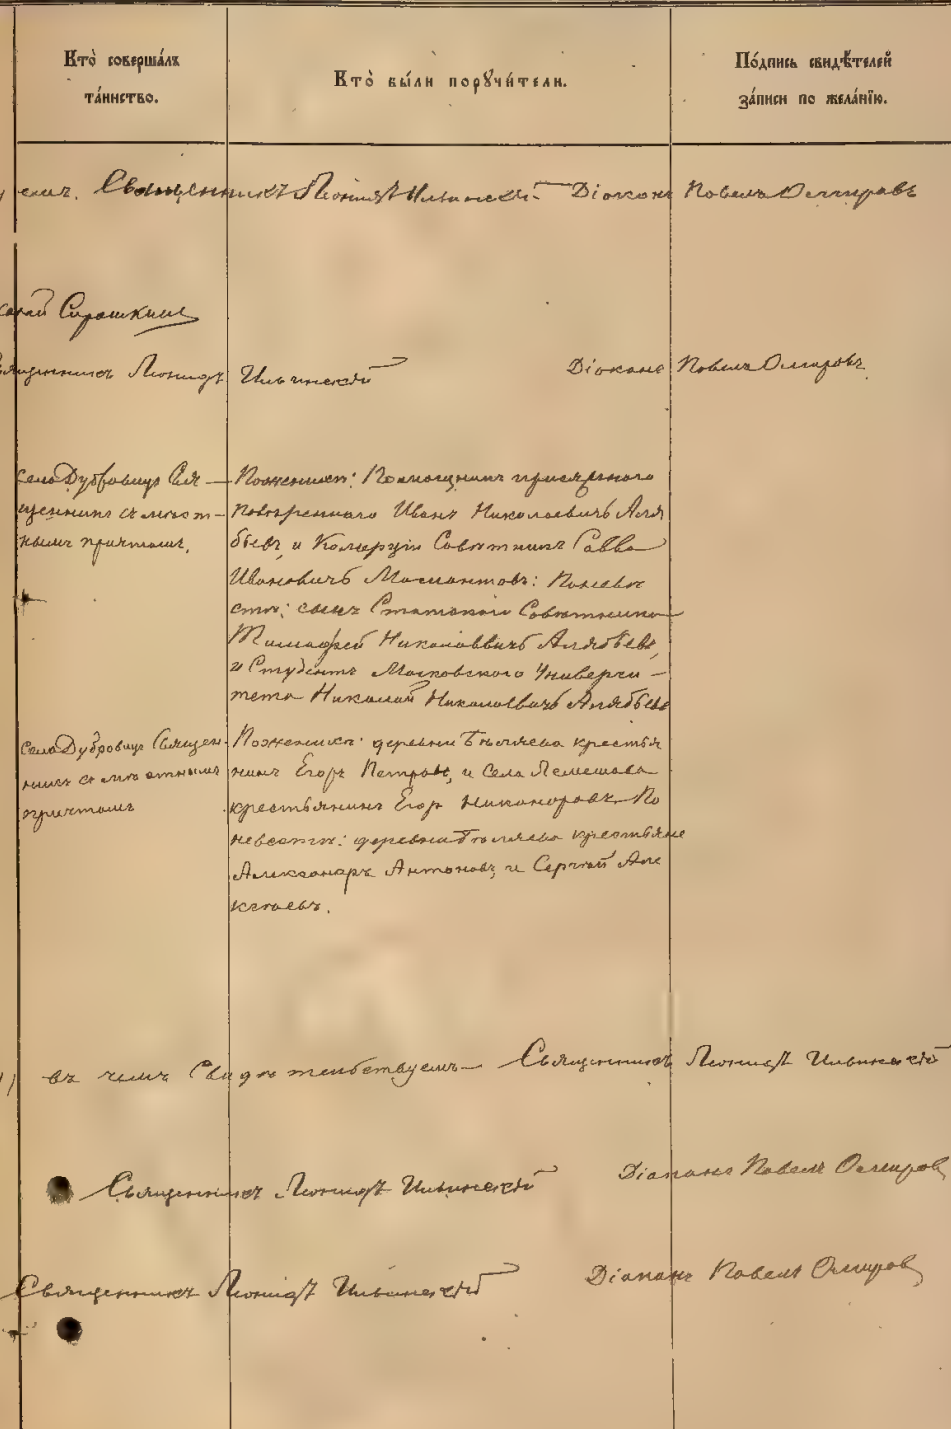 Кто̀ соверша́лъ
та́инство.
Кто̀ бы́ли поручи́тели.
По́дпись свидѣ́телей
за́писи по жела́нїю.
емъ. Священникъ Леонидъ Ильинскій Діаконъ Павелъ
Сирошкинъ
Священникъ Леонидъ Ильинскій Діаконъ Павелъ
Села Дубровицъ Свя-
щенникъ съ мѣст-
нымъ причтомъ.
По женихѣ: Помощникъ присяжнаго
повѣреннаго Иванъ Николаевичъ Аля
бьевъ, и Комерціи Совѣтникъ Савва
Ивановичъ Мамонтовъ: По невѣ
стѣ: сынъ Статскаго Совѣтника
Тимофей Николаевичъ Алябьевъ,
и Студентъ Московскаго Универси-
тета Николай Николаевичъ Алябьевъ
Села Дубровицъ Священ-
никъ съ мѣстнымъ
причтомъ
По женихѣ: деревни Бѣляева крестья
нинъ Егоръ Петровъ, и Села Лемешова
крестьянинъ Егоръ Никаноровъ. По
невѣстѣ: деревни Бѣляева крестьяне
Александръ Антоновъ, и Сергѣй Але
ксѣевъ.
въ чемъ Свидѣтельствуемъ Священникъ Леонидъ Ильинскій
Священникъ Леонидъ Ильинскій Діаконъ Павелъ
Священникъ Леонидъ Ильинскій Діаконъ Павелъ